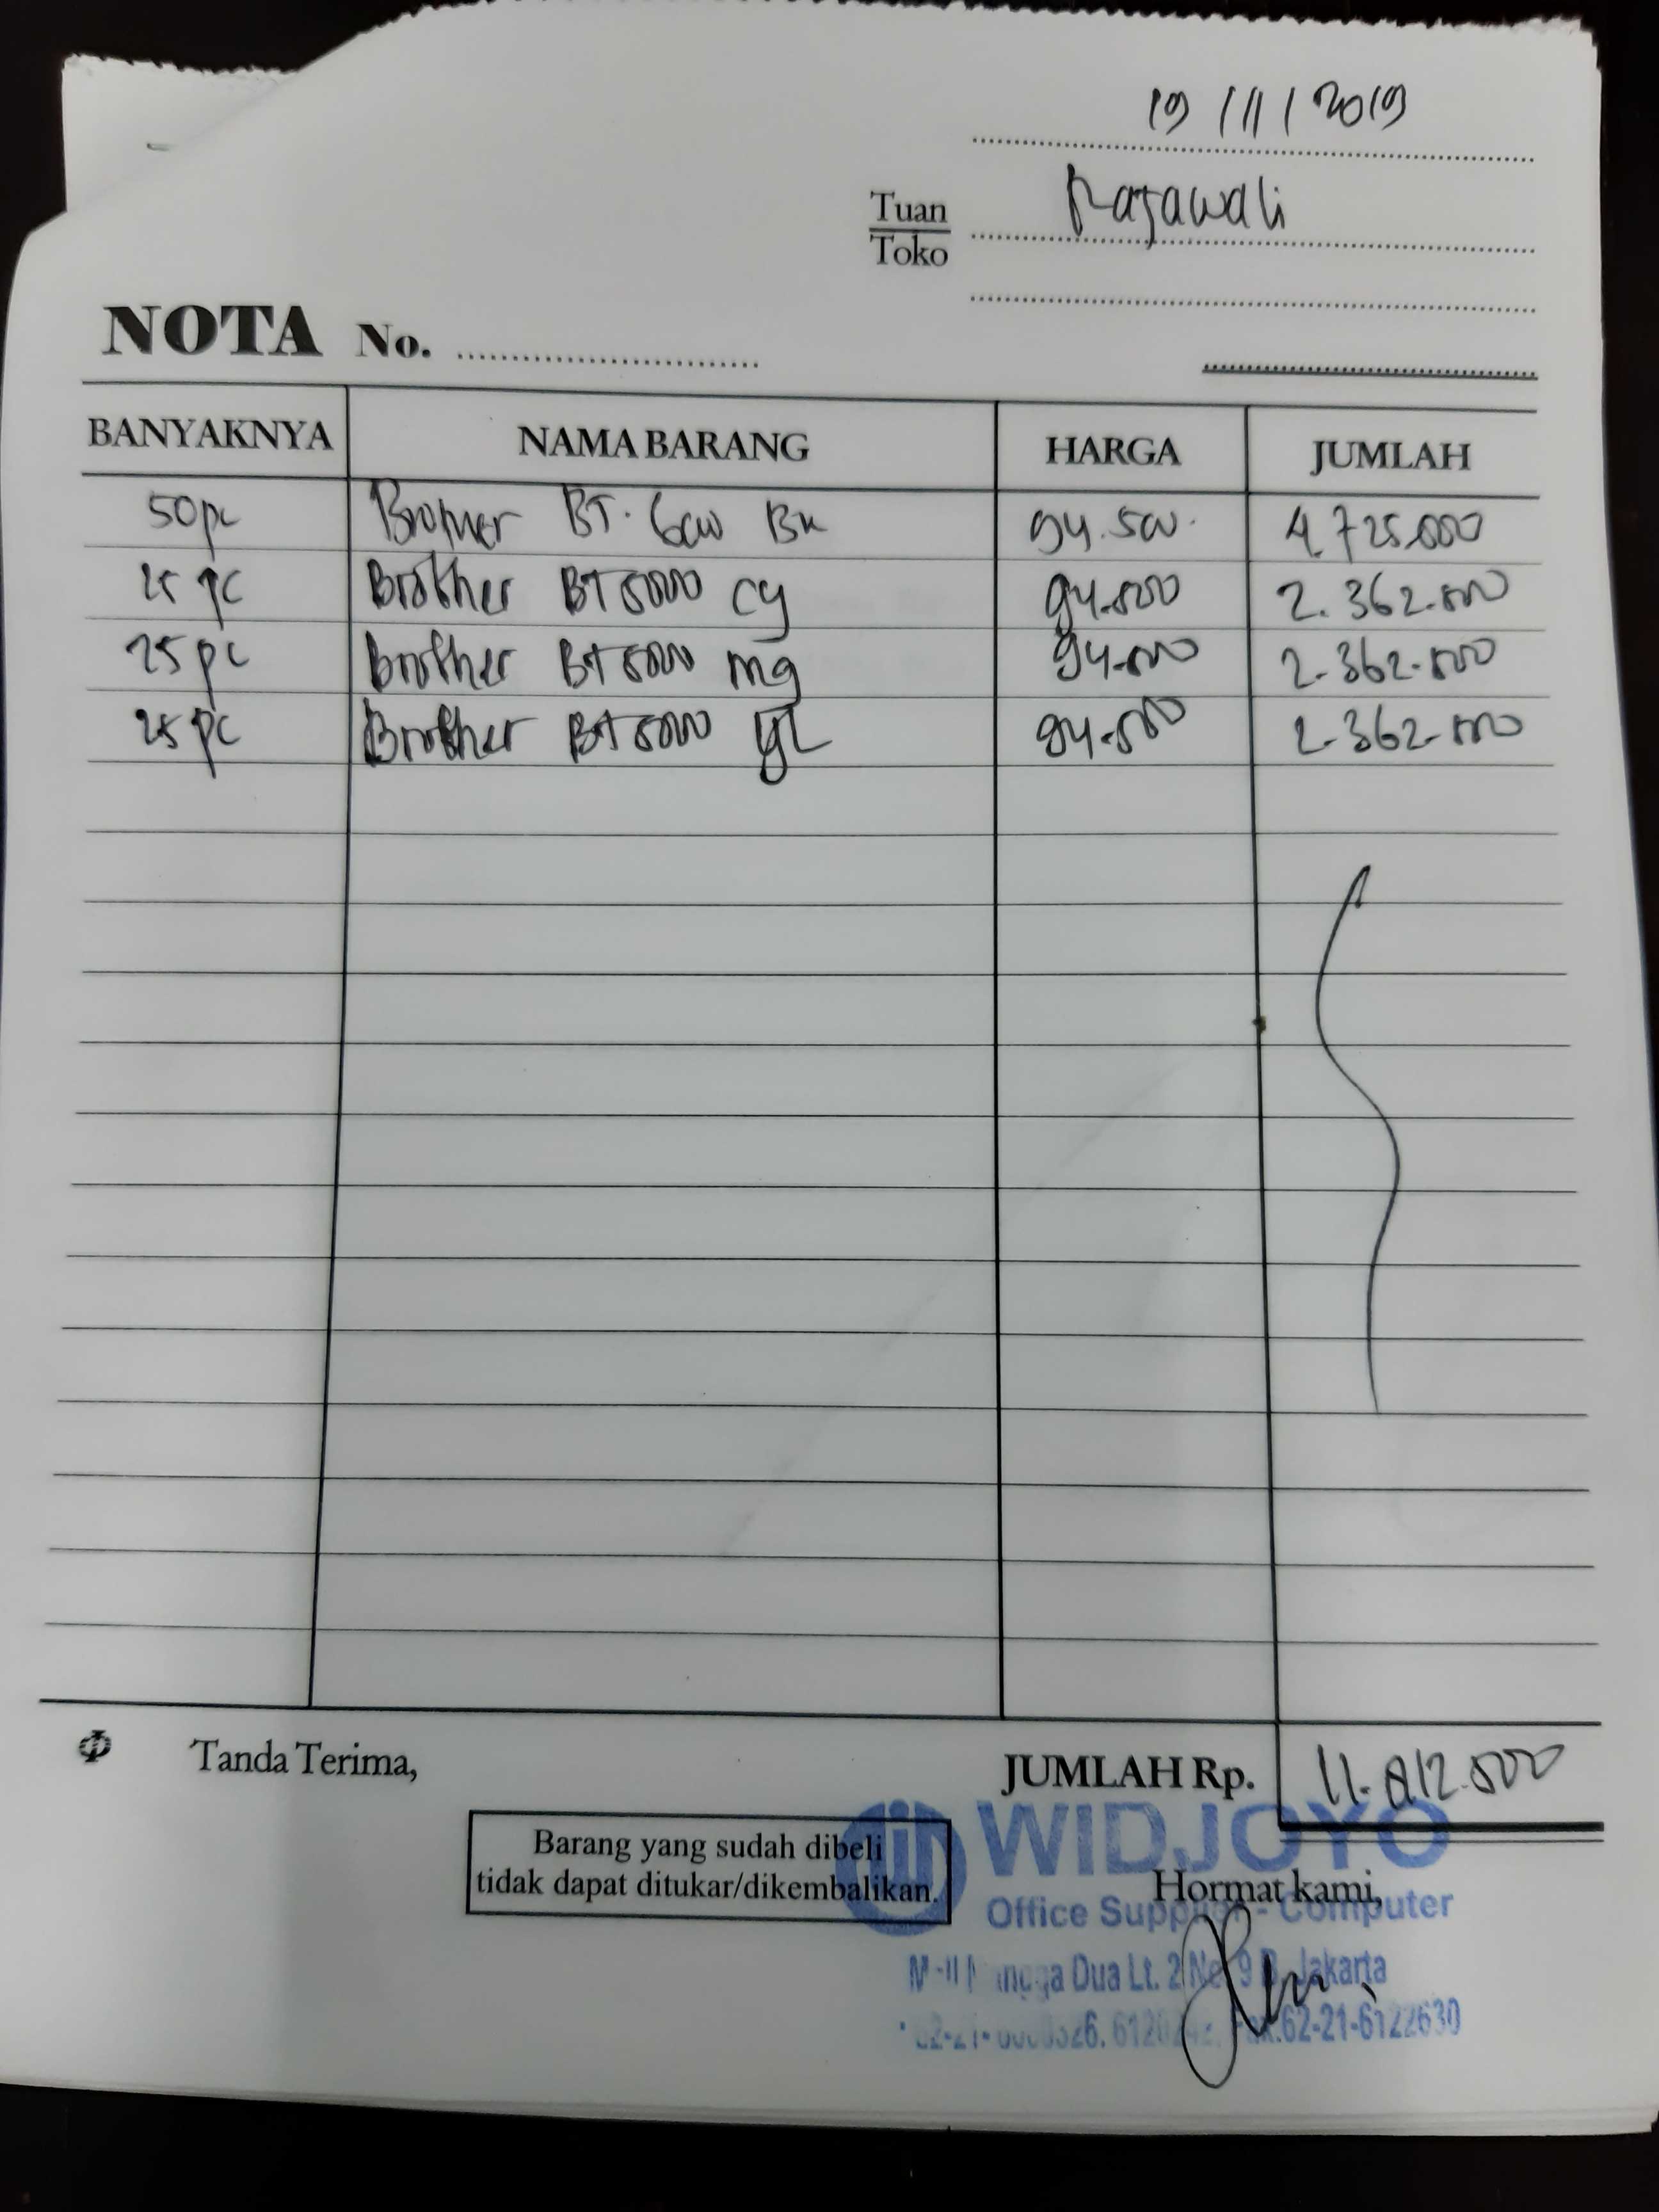 19/11/2019
Tuan
Toko
Rajawali
NOTA No.
BANYAKNYA NAMA BARANG HARGA JUMLAH
50 pc Brother BT. 6000 Bk 94.500 4.725.000
25 pc Brother BT5000 Cy 94.500 2.362.500
25 pc Brother BT5000 mg 94.500 2.362.500
25 pc Brother BT5000 YL 94.500 2.362.500
Tanda Terima, JUMLAH Rp. 11.812.500
Barang yang sudah dibeli
tidak dapat ditukar/dikembalikan.
WIDJOYO
Hormat kami,
Office Supplier - Computer
Dua Lt. 2 Jakarta
62-21-6122630